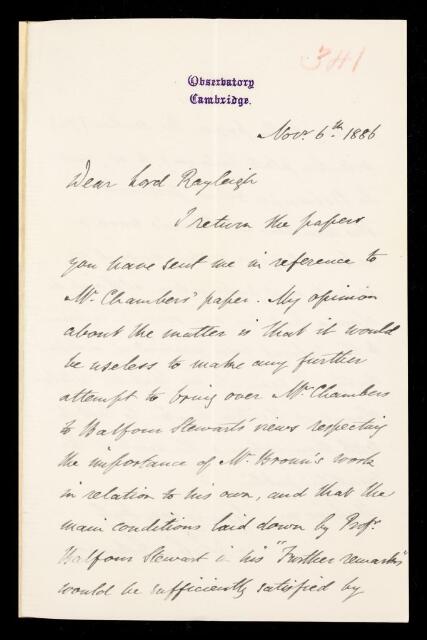 341
Observatory
Cambridge.
Novr. 6th. 1886
Dear Lord Rayleigh
I return the papers
you have sent me in reference to
Mr. Chambers' paper. My opinion
about the matter is that it would
be useless to make any further
attempt to bring over Mr. Chambers
to Balfour Stewart's views respecting
the importance of Mr. Broun's work
in relation to his own, and that the
main conditions laid down by Profr.
Balfour Stewart in his "Further remarks"
would be sufficiently satisfied by